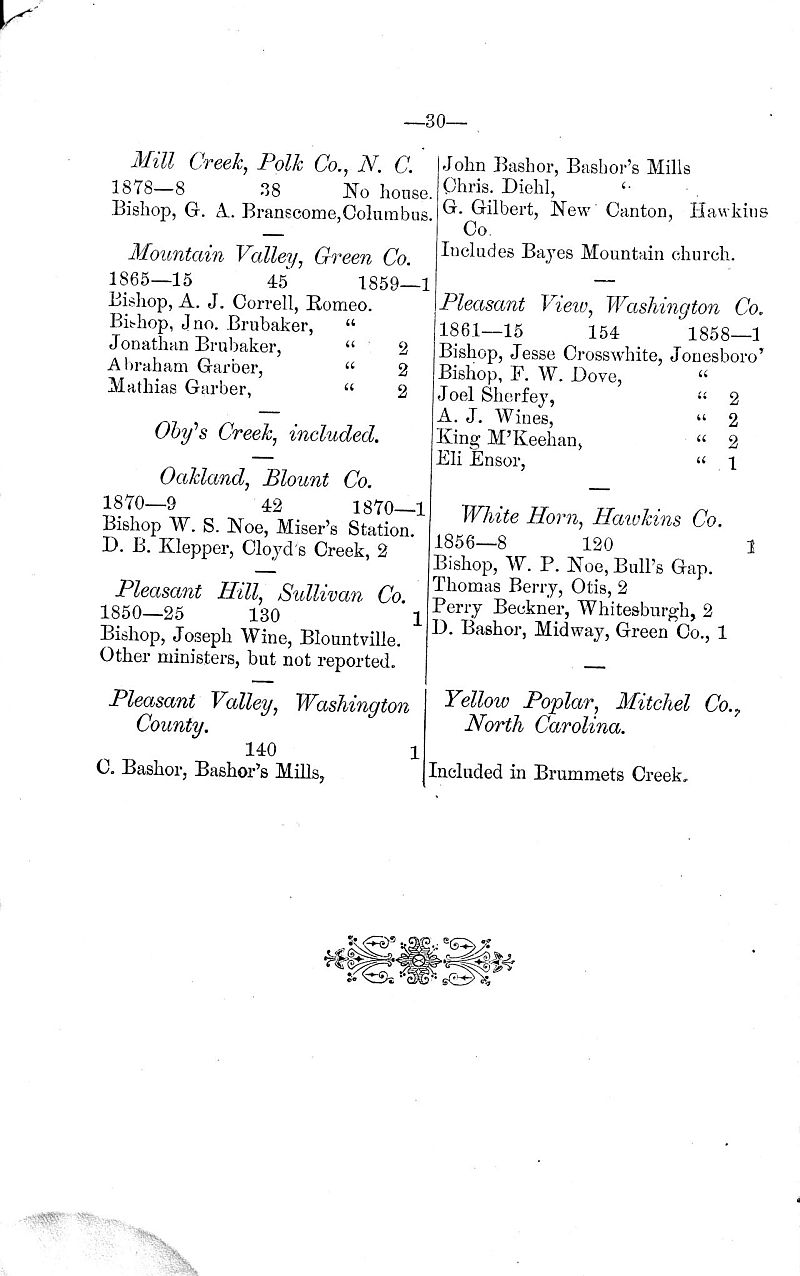 —30—
Mill Creek, Polk Co., N. C.
1878—8 38 No house.
Bishop, G. A. Branscome,Columbus.
Mountain Valley, Green Co.
1865—15 45 1859—1
Bishop, A. J. Correll, Romeo.
Bishop, Jno. Brubaker, “
Jonathan Brubaker, “ 2
Abraham Garber, “ 2
Mathias Garber, “ 2
Oby's Creek, included.
Oakland, Blount Co.
1870—9 42 1870—1
Bishop W. S. Noe, Miser's Station.
D. B. Klepper, Cloyd's Creek, 2
Pleasant Hill, Sullivan Co.
1850—25 130 1
Bishop, Joseph Wine, Blountville.
Other ministers, but not reported.
Pleasant Valley, Washington
County.
140 1
C. Bashor, Bashor's Mills,
John Bashor, Bashor's Mills
Chris. Diehl, “
G. Gilbert, New Canton, Hawkins
Co.
Includes Bayes Mountain church.
Pleasant View, Washington Co.
1861—15 154 1858—1
Bishop, Jesse Crosswhite, Jonesboro'
Bishop, F. W. Dove, “
Joel Sherfey, “ 2
A. J. Wines, “ 2
King M'Keehan, “ 2
Eli Ensor, “ 1
White Horn, Hawkins Co.
1856—8 120 1
Bishop, W. P. Noe, Bull's Gap.
Thomas Berry, Otis, 2
Perry Beckner, Whitesburgh, 2
D. Bashor, Midway, Green Co., 1
Yellow Poplar, Mitchel Co.,
North Carolina.
Included in Brummets Creek.